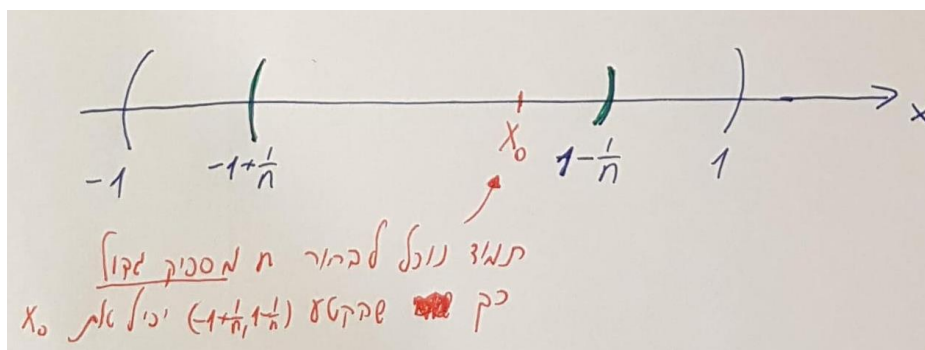 -1 -1+1/n x₀ 1-1/n 1 x
תמיד נוכל לבחור n מספיק גדול
כך שהקטע (-1+1/n, 1-1/n) יכיל את x₀